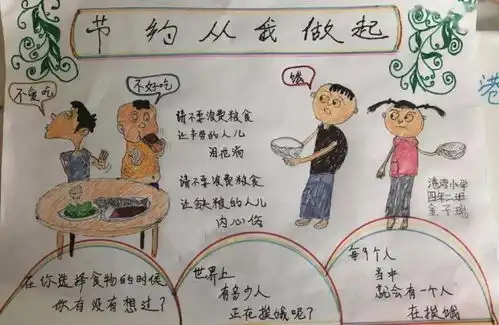 节约从我做起
不爱吃
不好吃
饿
请不要浪费粮食
让辛劳的人儿
泪花满
请不要浪费粮食
让缺粮的人儿
内心伤
港湾小学
四年二班
在你选择食物的时候
你有没有想过？
世界上
有多少人
正在挨饿呢？
每9个人
当中
就会有一个人
在挨饿